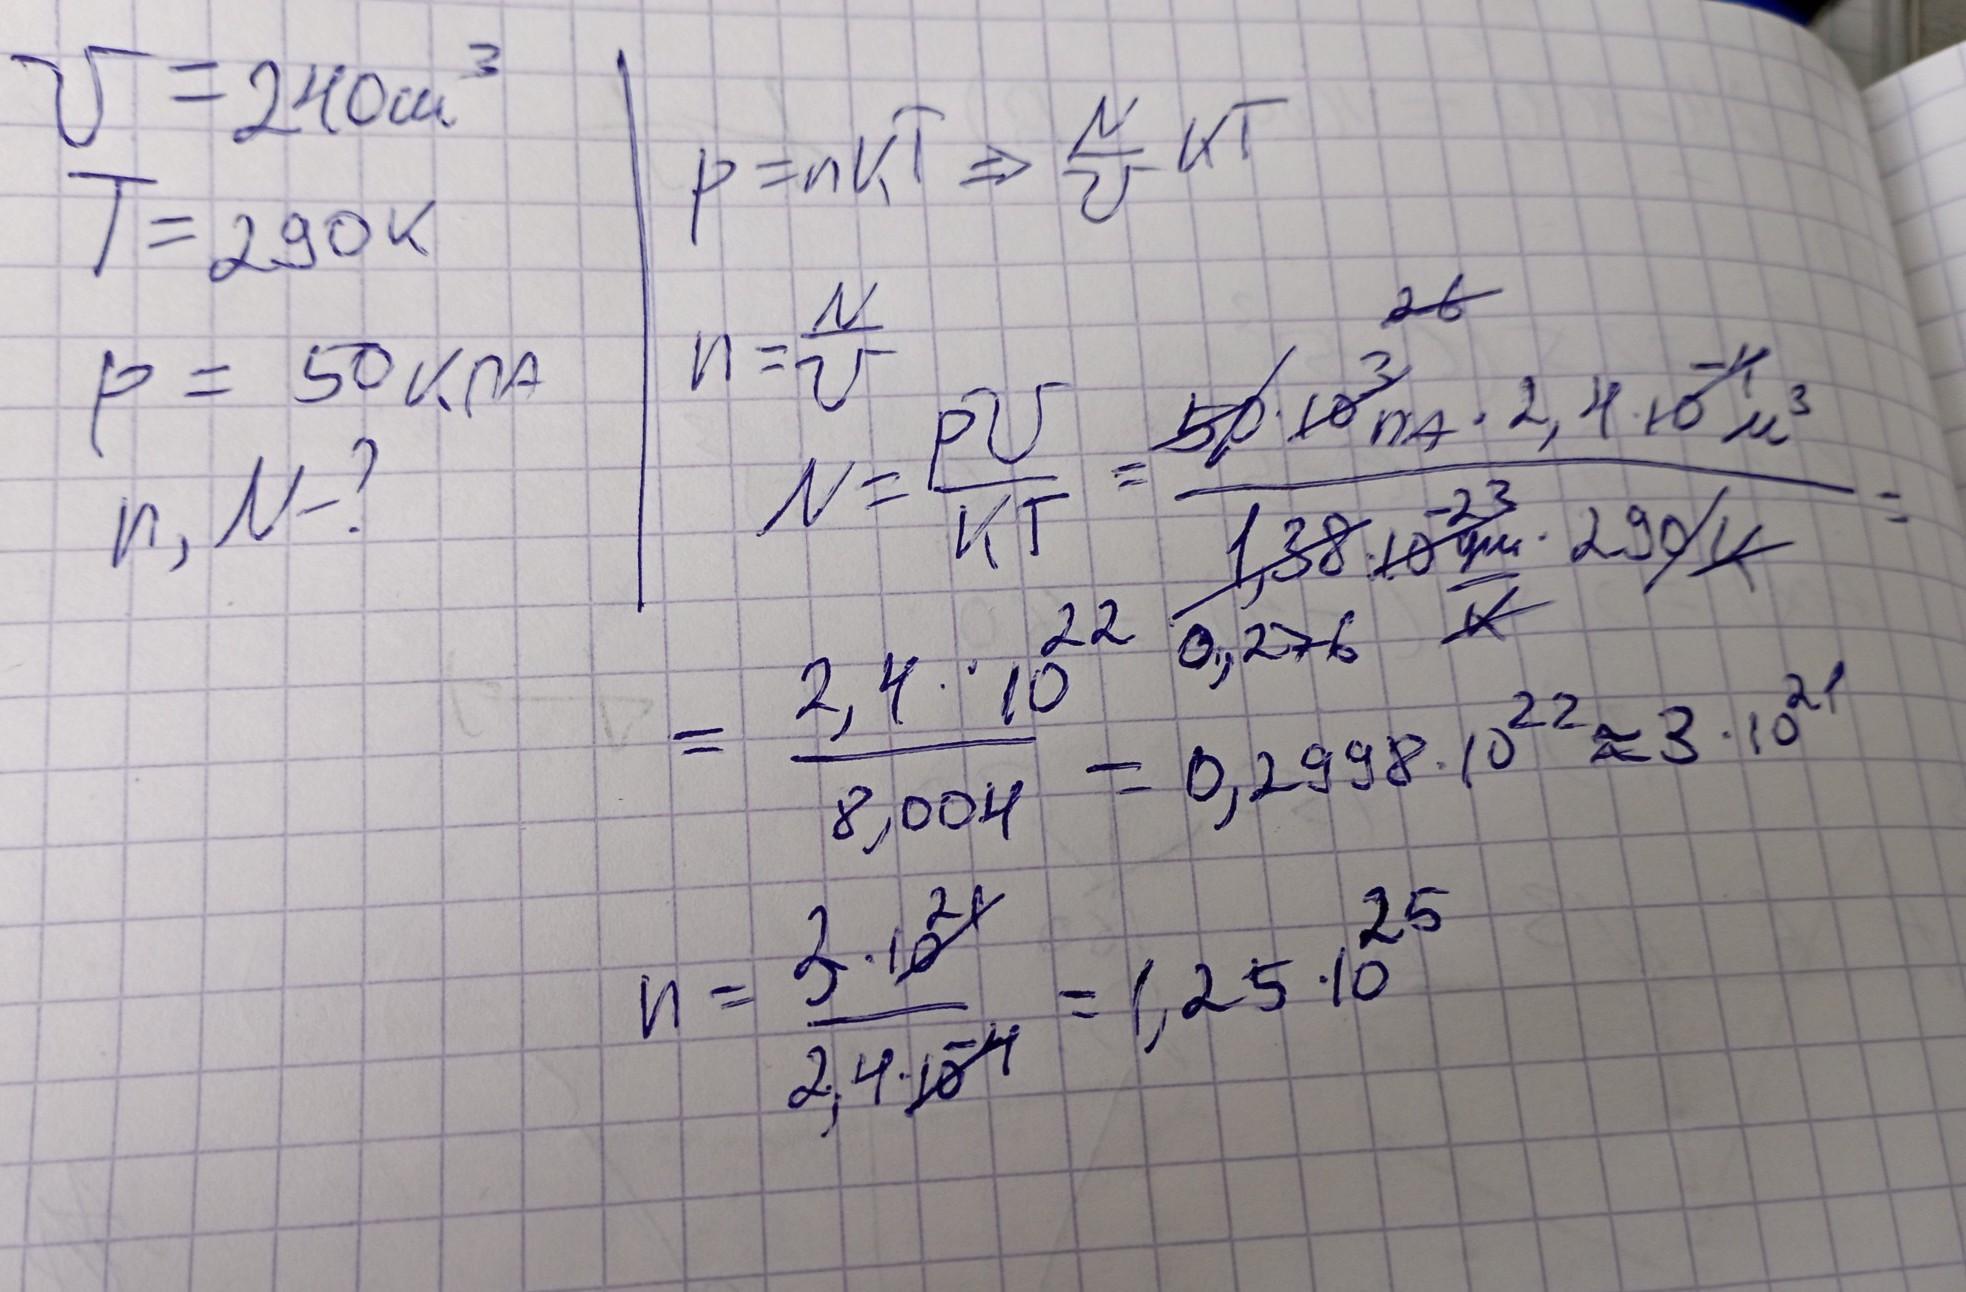 V = 240 см³
T = 290 К
p = 50 кПа
n, N - ?
p = nKT ⇒ N/V KT
n = N/V
N = pV/KT = 50 · 10³ ПА · 2,4 · 10⁻⁴ м³ / 1,38 · 10⁻²³ Дж/К · 290 К =
0,276
= 2,4 · 10²² / 8,004 = 0,2998 · 10²² ≈ 3 · 10²¹
n = 3 · 10²¹ / 2,4 · 10⁻⁴ = 1,25 · 10²⁵